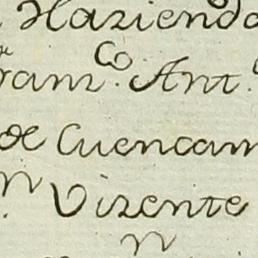 Hazienda
Fran.co Ant.
de Cuencam
n Vizente
n